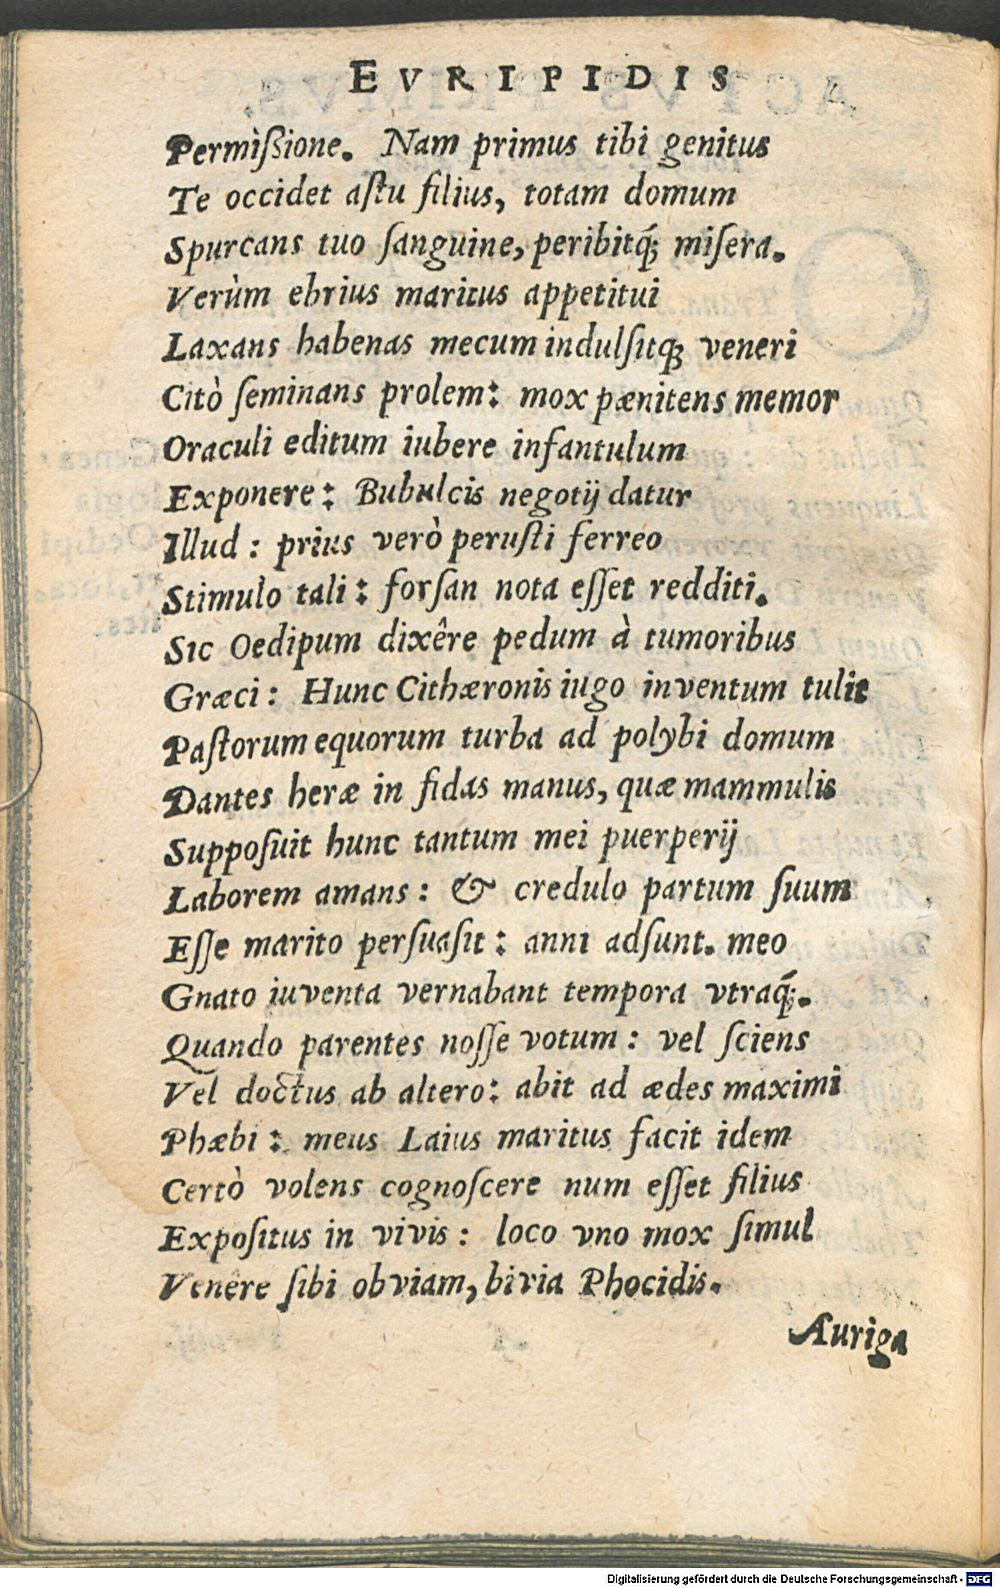 EVRIPIDIS
Permìßione. Nam primus tibi genitus
Te occidet aſtu filius, totam domum
Spurcans tuo ſanguine, peribitq́; miſera.
Verùm ebrius maritus appetitui
Laxans habenas mecum indulſitq; veneri
Citò ſeminans prolem: mox pænitens memor
Oraculi editum iubere infantulum
Exponere: Bubulcis negotij datur
Illud: prius verò perusti ferreo
Stimulo tali: forſan nota eſſet redditi.
Sic Oedipum dixêre pedum à tumoribus
Græci: Hunc Cithæronis iugo inventum tulit
Paſtorum equorum turba ad polybi domum
Dantes heræ in fidas manus, quæ mammulis
Suppoſuit hunc tantum mei puerperij
Laborem amans: & credulo partum ſuum
Eſſe marito perſuaſit: anni adſunt. meo
Gnato iuventa vernabant tempora vtraq́;.
Quando parentes noſſe votum: vel ſciens
Vel doctus ab altero: abit ad ædes maximi
Phæbi: meus Laius maritus facit idem
Certò volens cognoſcere num eſſet filius
Expoſitus in vivis: loco vno mox ſimul
Venêre ſibi obviam, bivia Phocidis.
Auriga
Digitalisierung gefördert durch die Deutsche Forschungsgemeinschaft - DFG